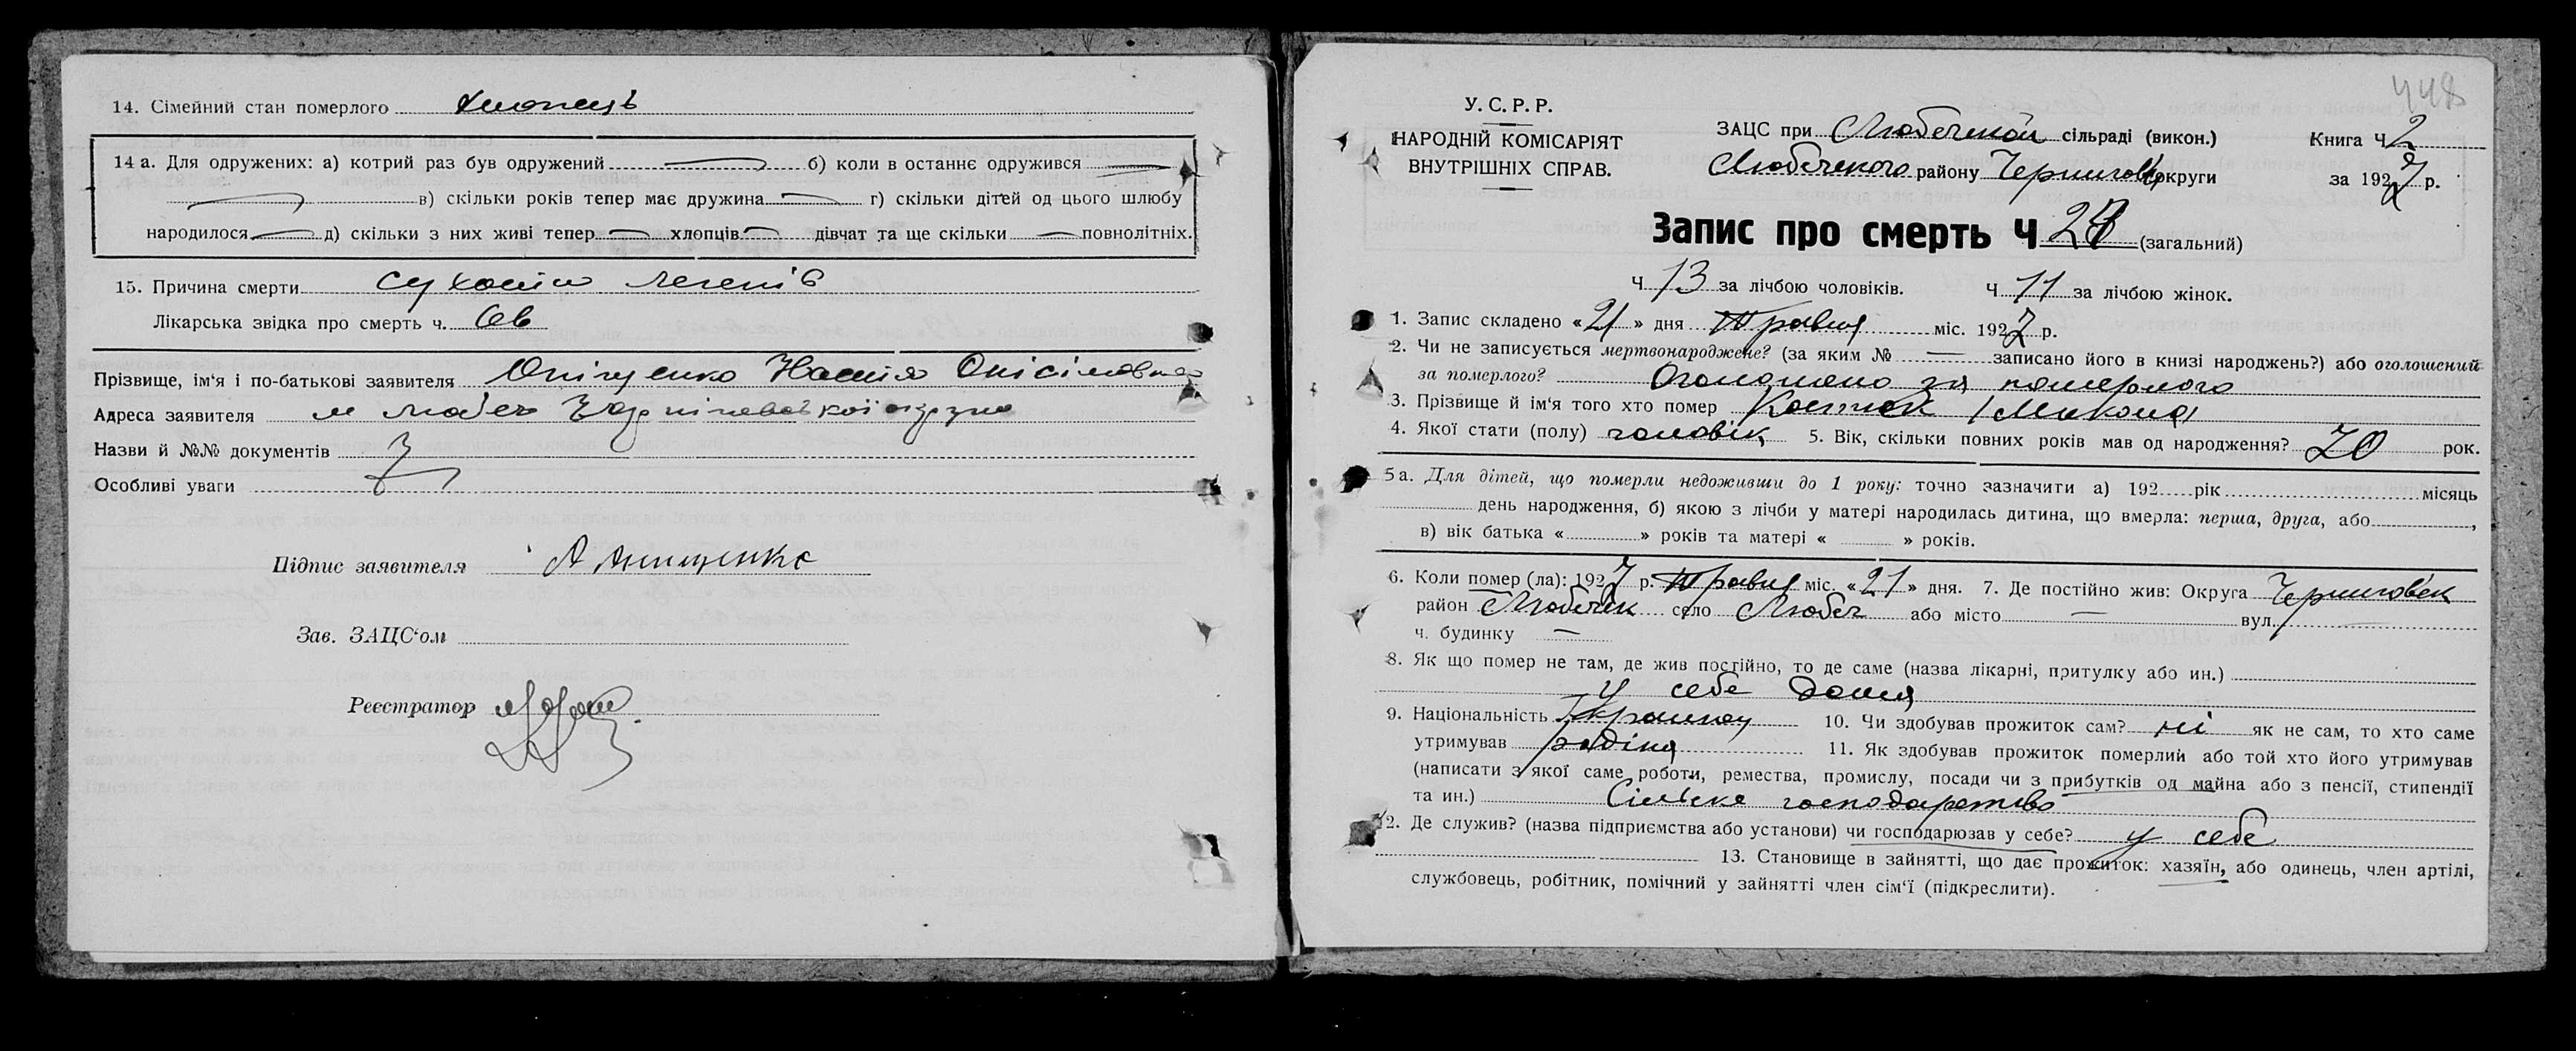 14. Сімейний стан померлого хлопець
14 а. Для одружених: а) котрий раз був одружений б) коли в останнє одружився
в) скільки років тепер має дружина г) скільки дітей од цього шлюбу
народилося д) скільки з них живі тепер хлопців дівчат та ще скільки повнолітніх.
15. Причина смерти сухоти легенів
Лікарська звідка про смерть ч.
Прізвище, ім'я і по-батькові заявителя Оніщенко Настія Онісімовна
Адреса заявителя м Любеч
Назви й №№ документів
Особливі уваги
Підпис заявителя А Анищенко
Зав. ЗАЦС'ом
Реєстратор
448
У. С. Р. Р.
НАРОДНІЙ КОМІСАРІЯТ
ВНУТРІШНІХ СПРАВ.
ЗАЦС при Любечській сільраді (викон.) Книга Ч 2
Любечського району Чернигов округи за 1927 р.
Запис про смерть Ч (загальний)
Ч 13 за лічбою чоловіків. Ч 11 за лічбою жінок.
1. Запис складено «21» дня Травня міс. 1927 р.
2. Чи не записується мертвонароджене? (за яким № — записано його в книзі народжень?) або оголошений
за померлого? Оголошено за померлого
3. Прізвище й ім'я того хто помер Костюк Микола
4. Якої стати (полу) чоловік 5. Вік, скільки повних років мав од народження? 20 рок.
5 а. Для дітей, що померли недоживши до 1 року: точно зазначити а) 192 рік місяць
день народження, б) якою з лічби у матері народилась дитина, що вмерла: перша, друга, або ,
в) вік батька « » років та матері « » років.
6. Коли помер (ла): 1927 р. Травня міс. «21» дня. 7. Де постійно жив: Округа Черниговськ
район Любечськ село Любеч або місто — вул. —
ч. будинку —
8. Як що помер не там, де жив постійно, то де саме (назва лікарні, притулку або ин.)
у себе дома
9. Національність Украинец 10. Чи здобував прожиток сам? ні як не сам, то хто саме
утримував родіна 11. Як здобував прожиток померлий або той хто його утримував
(написати з якої саме роботи, ремества, промислу, посади чи з прибутків од майна або з пенсії, стипендії
та ин.) Сільське господарство
12. Де служив? (назва підприємства або установи) чи господарюзав у себе? у себе
13. Становище в зайнятті, що дає прожиток: хазяїн, або одинець, член артілі,
службовець, робітник, помічний у зайнятті член сім'ї (підкреслити).